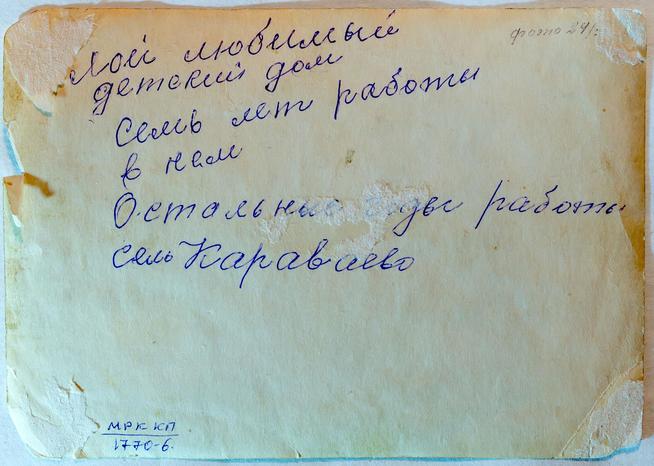 фото 241
Мой любимый
детский дом
Семь лет работы
в нем
Остальные годы работы
село Караваево
МРК КП
1770-6.